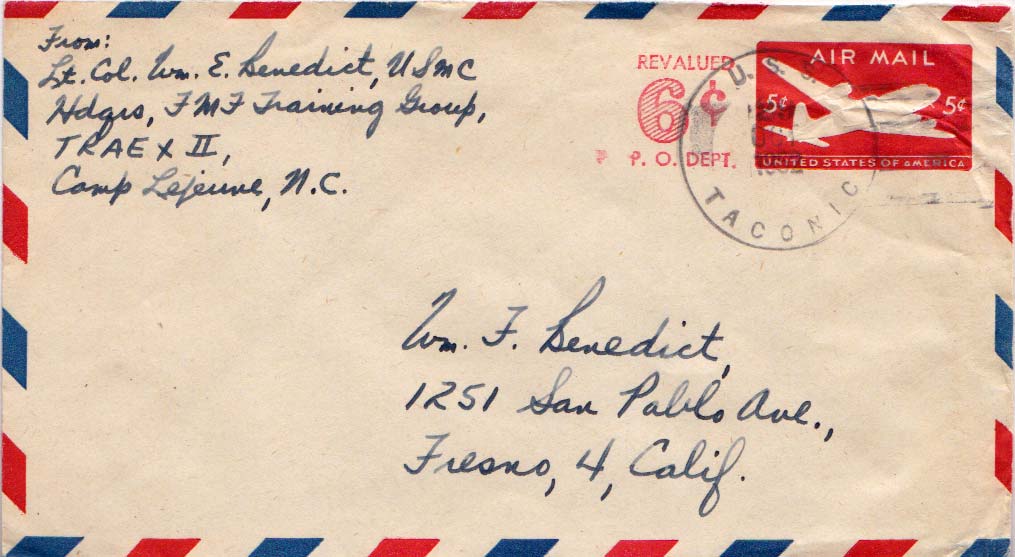 From:
Lt. Col. Wm. E. Benedict, USMC
Hdqrs, FMF Training Group,
TRAEX II,
Camp Lejeune, N.C.
REVALUED
6¢
P. O. DEPT.
U. S. S.
TACONIC
1952
AIR MAIL
5¢ 5¢
UNITED STATES OF AMERICA
Wm. F. Benedict,
1251 San Pablo Ave.,
Fresno, 4, Calif.